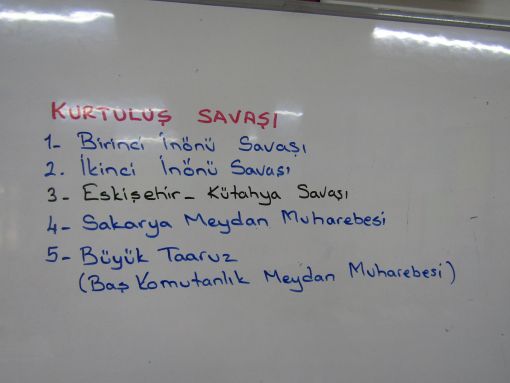 KURTULUŞ SAVAŞI
1- Birinci İnönü Savaşı
2. İkinci İnönü Savaşı
3 - Eskişehir - Kütahya Savaşı
4- Sakarya Meydan Muharebesi
5- Büyük Taaruz
(Baş Komutanlık Meydan Muharebesi)